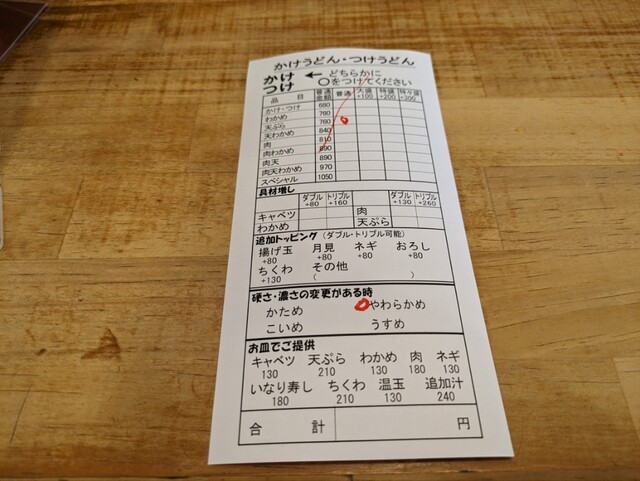 かけうどん・つけうどん
かけ ← どちらかに
つけ ○をつけてください
品目 普通金額 普通 大盛+100 特盛+200 特々盛+300
かけ・つけ 680
わかめ 760
天ぷら 760
天わかめ 840
肉 810
肉わかめ 890
肉天 890
肉天わかめ 970
スペシャル 1050
具材増し
ダブル+80 トリプル+160 ダブル+130 トリプル+260
キャベツ 肉
わかめ 天ぷら
追加トッピング (ダブル・トリプル可能)
揚げ玉 月見 ネギ おろし
+80 +80 +80 +80
ちくわ その他
+130 ( )
硬さ・濃さの変更がある時
かため やわらかめ
こいめ うすめ
お皿でご提供
キャベツ 天ぷら わかめ 肉 ネギ
130 210 130 180 130
いなり寿し ちくわ 温玉 追加汁
180 210 130 240
合計 円